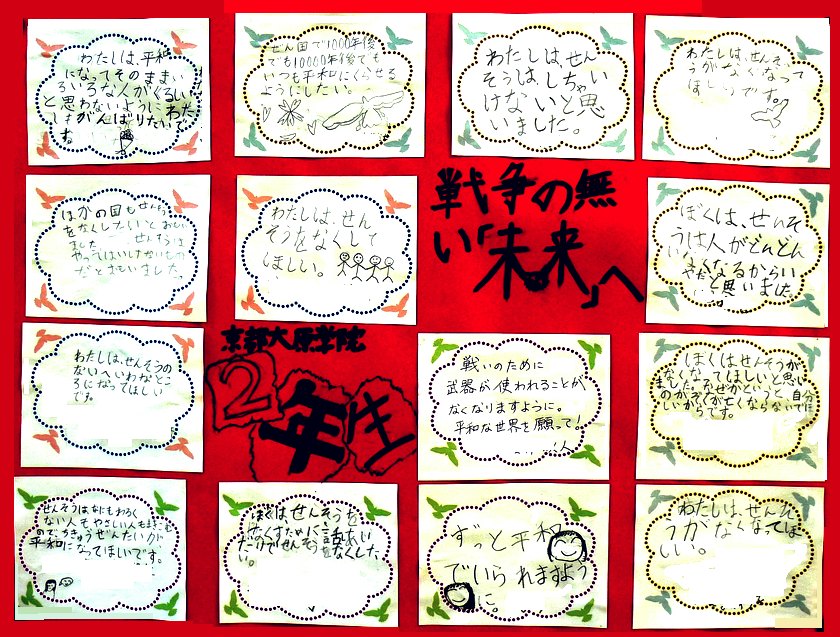 わたしは、平和
になってそのままい
ろいろな人がくるしい
と思わないようにわたし
がんばりたいです。
ぜん国で1000年後
でも10000年後でも
いつも平和にくらせる
ようにしたい。
わたしは、せん
そうは、しちゃい
けないと思
いました。
わたしは、せんそ
うがなくなって
ほしいです。
ほかの国もせんそう
をなくしてほしいと
ました。せんそうは
やってはいけないもの
だと
わたしは、せん
そうをなくして
ほしい。
戦争の無
い「未来」へ
ぼくは、せんそ
うは人がどんどん
いなくなるからい
やだ
と思いました
京都大原学院
2年生
わたしは、せんそうの
ないへいわなとこ
ろになってほしい
です。
戦いのために
武器が使われることが
なくなりますように。
平和な世界を願って!
ぼくはせんそうが
なくなってほしいと思い
ました。なぜかというと、自分
のかぞくが亡くならないでほ
しいからです。
せんそうはなにもわるく
ない人もやさしい人も
ので、ちきゅうぜんたいが
平和になってほしいです。
ぼくはせんそうを
なくすために話あい
だけでせんそうをなくした
い。
ずっと平和
でいられますよう
に。
わたしは、せんそ
うがなくなってほ
しい。